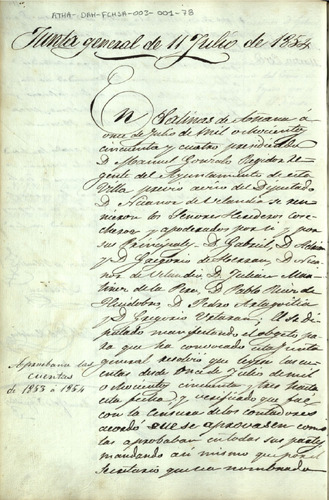 ATHA-DAH-FCHSA-003-001-78
Junta general de 11 Julio de 1854
En Salinas de Anana á
once de Julio de mil ochocientos
cincuenta y cuatro presididos
D. Manuel Gonzalo Regidor Re-
gente del Ayuntamiento de esta
Villa previo aviso del Diputado
D. Nicanor de Velandia se reu-
nieron los Señores Herederos
y apoderados por si y por
sus Principales, D. Gabriel, D.
y D. Gregorio de Herran, D. Nica-
nor de Velandia, D. Julian Mar-
tinez de la Pera, D. Pablo Ruiz de
Huidobro, D. Pedro Artagoitia
y D. Gregorio Velasco. El Sr. Di-
putado manifestando el objeto
para que ha convocado esta Junta
general resolvio que leyese las cu-
entas desde once de Julio de mil
ochocientos cincuenta y tres hasta
esta fecha, y verificado que fué
con la censura de los contadores
acordó que se aprovasen como
las aprobaban en todas sus partes
mandando asi mismo que por el
Secretario que sea nombrado
Aprobaron las
cuentas
de 1853 a 1854